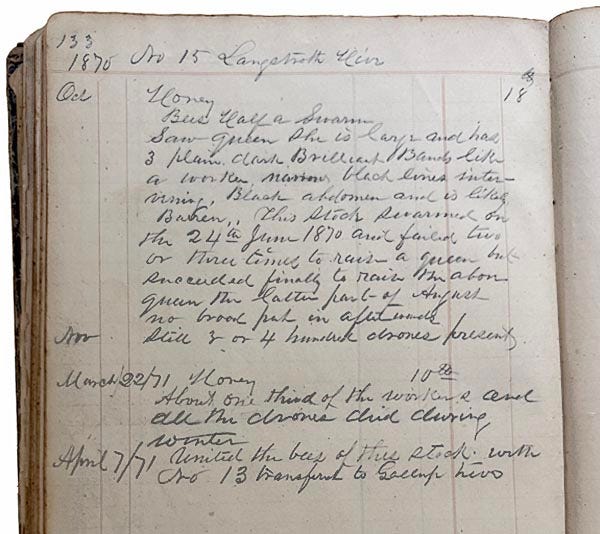 133
1870 No 15 Langstroth Hive
Oct Honey 18 lb
Bees Half a Swarm
Saw queen she is large and has
3 plain dark Brilliant Bands like
a worker narrow black lines inter
vining, Black abdomen and is likely
Barren,, This stock swarmed on
the 24th June 1870 and failed two
or three times to raise a queen but
succeeded finally to raise the above
queen the latter part of August
no brood put in afterwards
Nov Still 3 or 4 hundred drones present,
March/22/71 Honey 10 lb
About one third of the workers and
all the drones died during
winter
April 7/71 United the bees of this stock with
No 13 transferred to Gallup hive